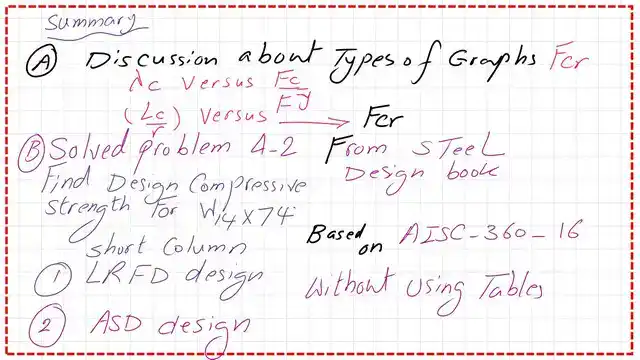 Summary
(A) Discussion about Types of Graphs Fcr
λc versus Fc/Fy
(Lc/r) versus → Fcr
(B) Solved problem 4-2 From STeeL
Design book
Find Design Compressive
strength For W14x74
short Column
Based on AISC-360-16
(1) LRFD design
Without Using Tables
(2) ASD design